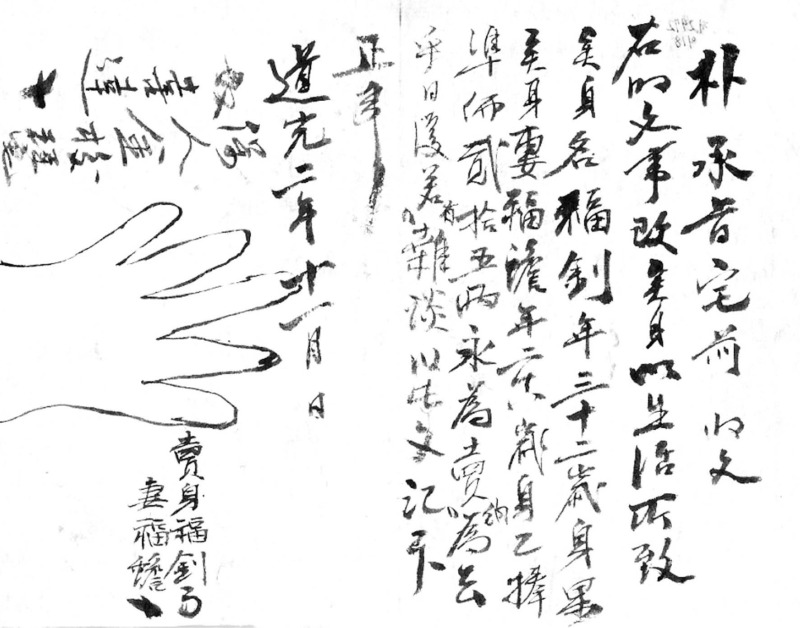 朴承旨宅前 明文
右明文事段矣身以生活所致
矣身名福釗年三十二歲身果
矣身妻福蟾年二十八歲身乙捧
準價貳拾五兩永爲賣納爲去
乎日後若有雜談以此文記卞
正事
道光二年十一月 日
賣身福釗
妻福蟾
人金